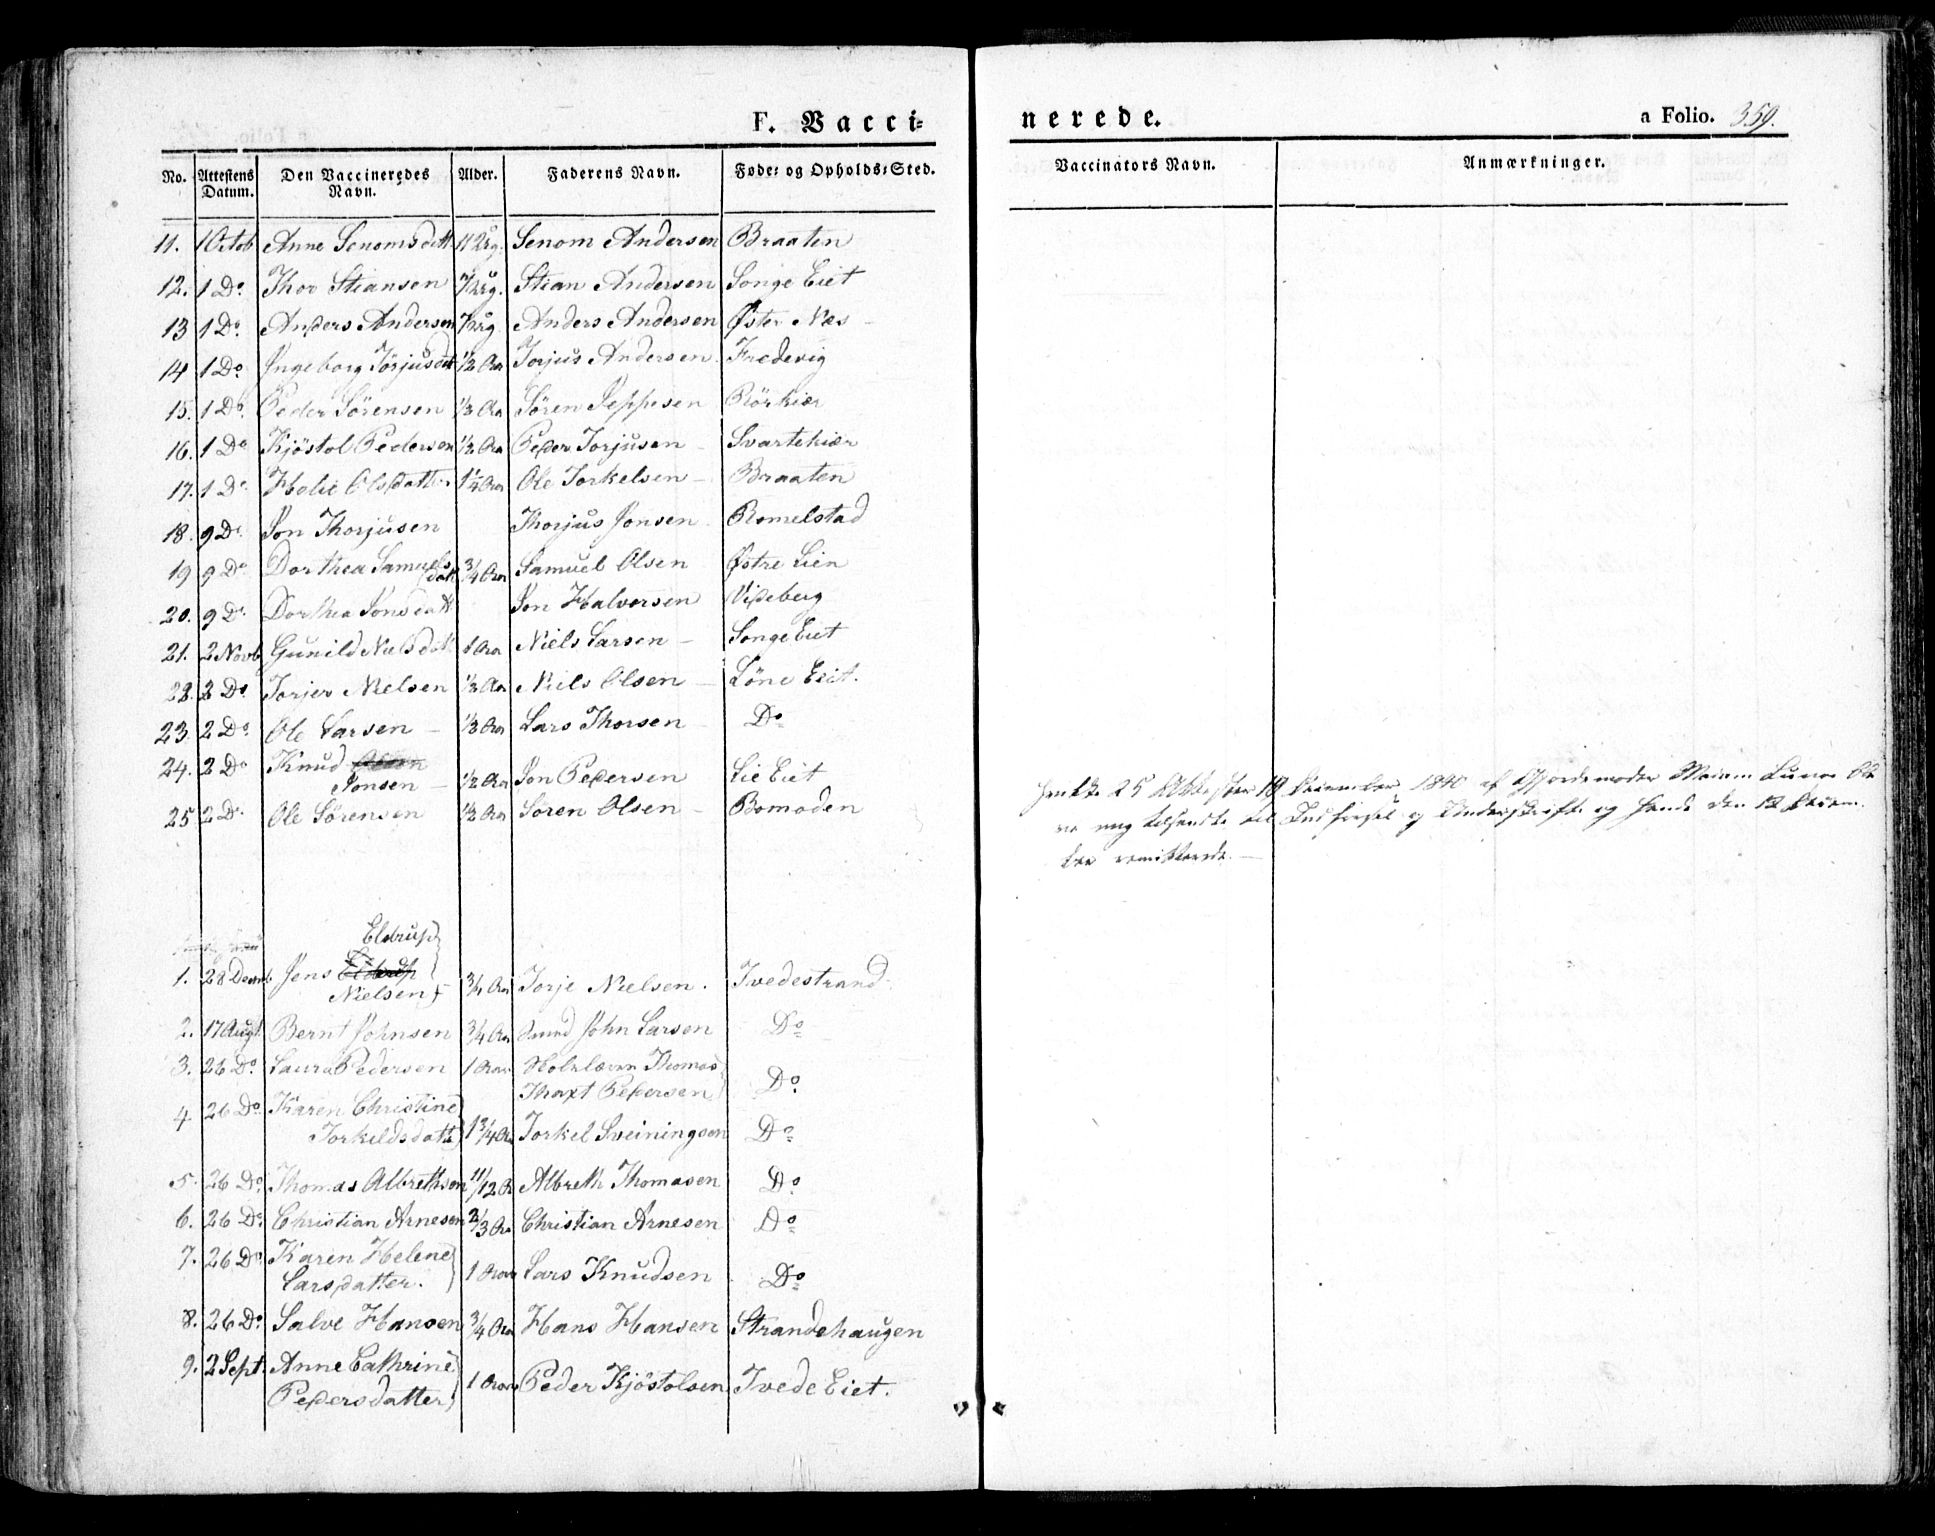 F. Vacci=
nerede.
a Folio. 359.
No. Attestens Datum. Den Vaccineredes Navn. Alder. Faderens Navn. Føde= og Opholds=Sted.
Vaccinators Navn. Anmærkninger.
11. 1 Octob Anne Senomsdatt Senom Andersen Braaten
12. 1 Do. Thor Stiansen Stian Andersen Songe Eiet
13 1 Do. Anders Andersen Anders Andersen Øster Næs
14 1 Do. Ingeborg Torjusdat 1/2 Aar Torjus Andersen Fredevig
15. 1 Do. Peder Sörensen 1/3 Aa Sören Jeppesen Rörkiær
16. 1 Do Kjöstol Pedersen 1/2 Aa Peder Torjusen Svartekiær
17. 1 Do Helie Olsdatter 1 1/4 Aar Ole Torkelsen Braaten
18. 9 Do. Jon Thorjusen Thorjus Jonsen Romelstad
19 9 Do Dorthea Samuels
datt 3/4 Aar Samuel Olsen Østre Lien
20. 9 Do. Dorthea Jonsdatt Jon Halvorsen Videberg
21. 2 Novb Gunild Nielsdatt 1 Aar Niels Larsen Songe Eiet
22. 2 Do. Torjer Nielsen 1/3 Aar Niels Olsen Löne Eiet.
23. 2 Do. Ole Larsen 1/3 Aar Lars Thorsen Do
24. 2 Do Knud
Jonsen 1/2 Aar Jon Pedersen Lie Eiet
25 2 Do. Ole Sörensen 1/2 Aar Sören Olsen Bomoden
25 Attester 19 December 1840 af Gjordemoder
mig tilsendte til Indførsel og Underskrift og
remitterede.
Eldrup
1. 28 Decmb Jens
Nielsen 3/4 Aar Torje Nielsen. Tvedestrand
2. 17 Augt. Bernt Johnsen 3/4 Aar Smed John Larsen Do
3. 26 Do. Laura Pedersen 1 Aar Thomas
Thaxt Pedersen Do.
4 26 Do. Karen Christine
Torkildsdatt 1 3/4 Aa Torkel Sveiningsen Do
5. 26 Do. Thomas Albrethsen 11/12 A Albreth Thomasen Do.
6. 26 Do. Christian Arnesen 2/3 Aa Christian Arnesen Do
7. 26 Do. Karen Helene
Larsdatter. 1 Aar Lars Knudsen Do
8. 26 Do. Salve Hansen 3/4 Aar Hans Hansen Strandehaugen
9. 2 Sept. Anne Cathrine
Pedersdatter 1 Aar Peder Kjöstolsen Tvede Eiet.